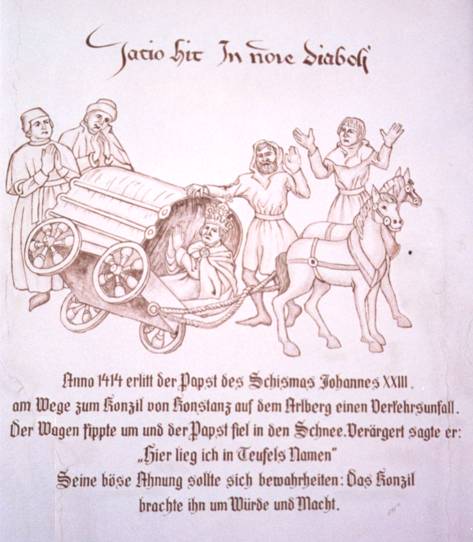 Jacio hic In nōre diaboli
Anno 1414 erlitt der Papst des Schismas Johannes XXIII.
am Wege zum Konzil von Konstanz auf dem Arlberg einen Verkehrsunfall.
Der Wagen kippte um und der Papst fiel in den Schnee. Verärgert sagte er:
„Hier lieg ich in Teufels Namen"
Seine böse Ahnung sollte sich bewahrheiten: Das Konzil
brachte ihn um Würde und Macht.